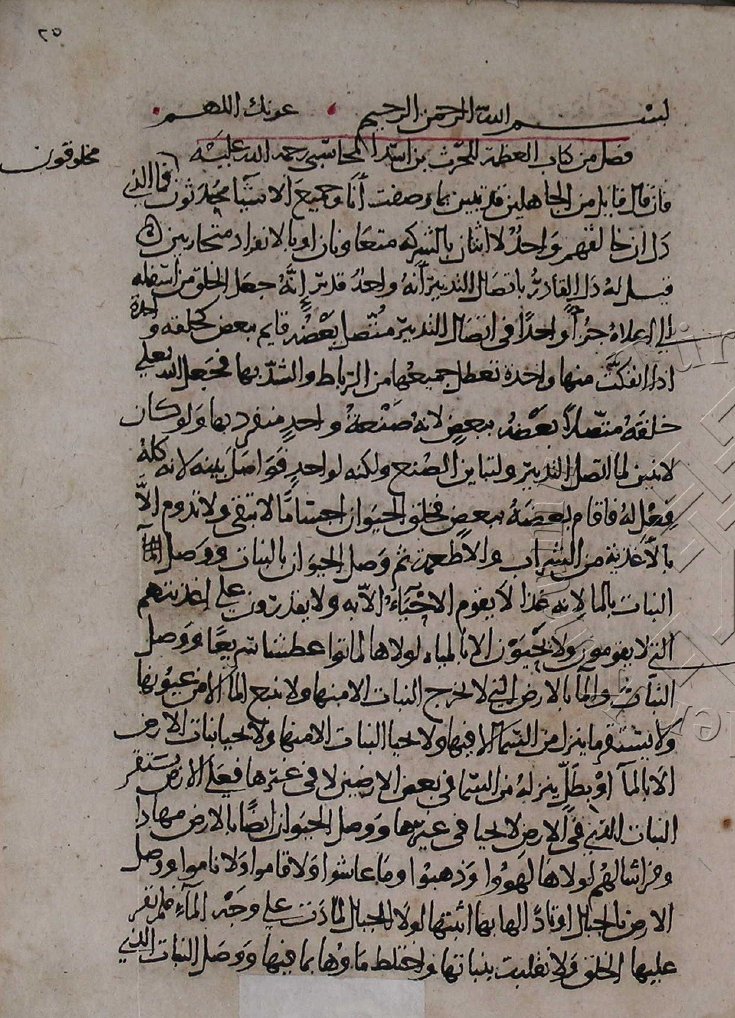 ٢٥
بسم الله الرحمن الرحيم عونك اللهم
فصل من كتاب العظمة للحرث بن اسد المحاسبي رحمه الله عليه
مخلوقون
فان قال قايل من الجاهلين قد تبين بما وصفت انا وجميع الاشيا محدثون فما الذي
دل ان خالقهم واحد لا اثنان بالشركه متعاونان او بالانفراد متحاربين
قيل له دل القادر باتصال التدبير انه واحد قدير انه جعل الخلق من اسفله
الي اعلاه جزأ واحدا في اتصال التدبير متصل بعضه قايم ببعض كحلقه واحدة
اذا انفكت منها واحده تعطل جميعها من الرباط والشد بها فجعل الله تعلي
خلقه متصلا بعضه ببعض لانه صنعة واحد منفرد بها ولو كان
لاثنين لما اتصل التدبير ولتباين الصنع ولكنه لواحد فواصل بينه لانه كله
فعل له فاقام بعضه ببعض فخلق الحيوان اجساما لا تبقى ولا تدوم الا
بالاغذية من الشراب والاطعمه ثم وصل الحيوان بالنبات ووصل
النبات بالما لانه غذا لا يقوم الاحياء الا به ولا يقدرون علي اغذيتهم
التي لا يقومون ولا يحيون الا بالماء لولاها لماتوا عطشا سريعا ووصل
النبات والما بالارض التي لا يخرج النبات الا منها ولا ينبع الما الا من عيونها
ولا يستقر ما ينزل من السما الا فيها ولا يحيا النبات الا منها ولا يحيا نبات الارض
الا بالما او بطل ينزله من السما في بعض الارضين لا في غيرها فعلى الارض يستقر
النبات الذي في الارض لا يحيا في غيرها ووصل الحيوان ايضا بالارض مهادا
وفراشا لهم لولاها لهووا وذهبوا وما عاشوا ولا قاموا ولا ناموا ووصل
الارض بالجبال اوتادا لها بها اثبتها لولا الجبال لمادت علي وجه الماء فلم يقر
عليها الخلق ولانقلبت بنباتها واختلط ماوها بما فيها ووصل النبات الذي